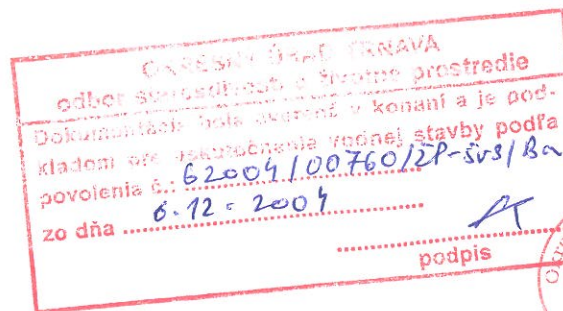 OKRESNÝ ÚRAD TRNAVA
odbor starostlivosti o životné prostredie
Dokumentácia bola overená v konaní a je pod-
kladom pre uskutočnenie vodnej stavby podľa
povolenia č.: G2004/00760/ŽP-ŠVS/Bo
zo dňa 6.12.2004
podpis